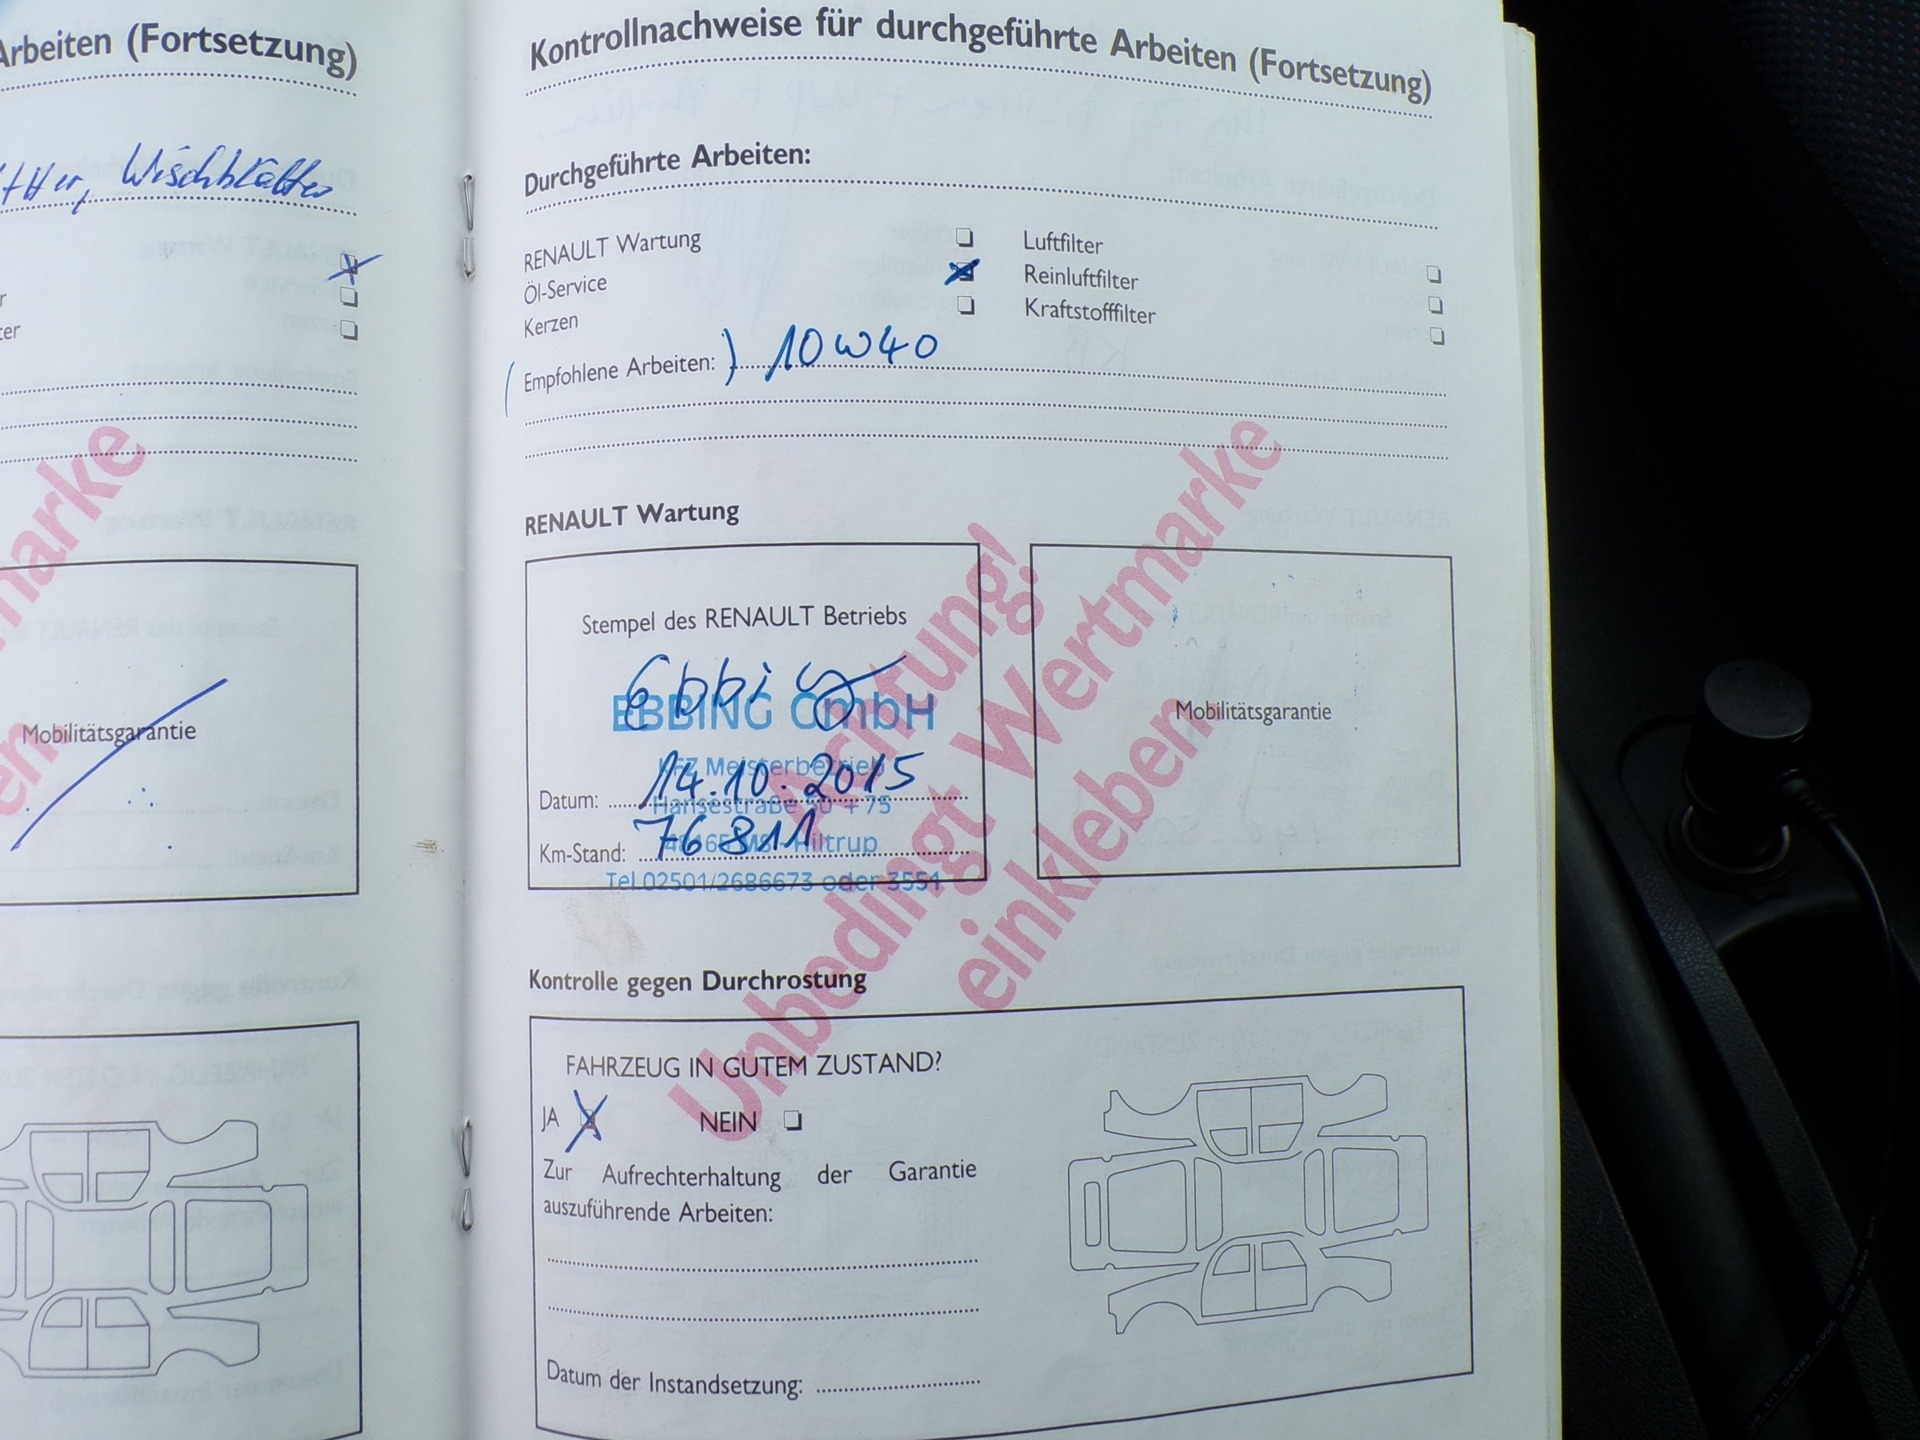 Arbeiten (Fortsetzung)
Wischblätter
Mobilitätsgarantie
Kontrollnachweise für durchgeführte Arbeiten (Fortsetzung)
Durchgeführte Arbeiten:
RENAULT Wartung
Luftfilter
Öl-Service
Reinluftfilter
Kerzen
Kraftstofffilter
(Empfohlene Arbeiten:) 10W40
RENAULT Wartung
Stempel des RENAULT Betriebs
EBBING GmbH
KFZ Meisterbetrieb
Datum: 14.10.2015
Hansestraße + 75
Km-Stand: 76811
Hiltrup
Tel.02501/2686673 oder 3551
Mobilitätsgarantie
Achtung!
Unbedingt Wertmarke
einkleben.
Kontrolle gegen Durchrostung
FAHRZEUG IN GUTEM ZUSTAND?
JA NEIN
Zur Aufrechterhaltung der Garantie
auszuführende Arbeiten:
Datum der Instandsetzung: